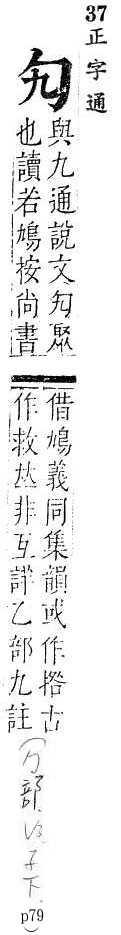 37正字通
勼
與九通說文勼聚
也讀若鳩按尚書
借鳩義同集韻或作揫古
作救𠀤非互詳乙部九註
(勹部.
子下.
p79)